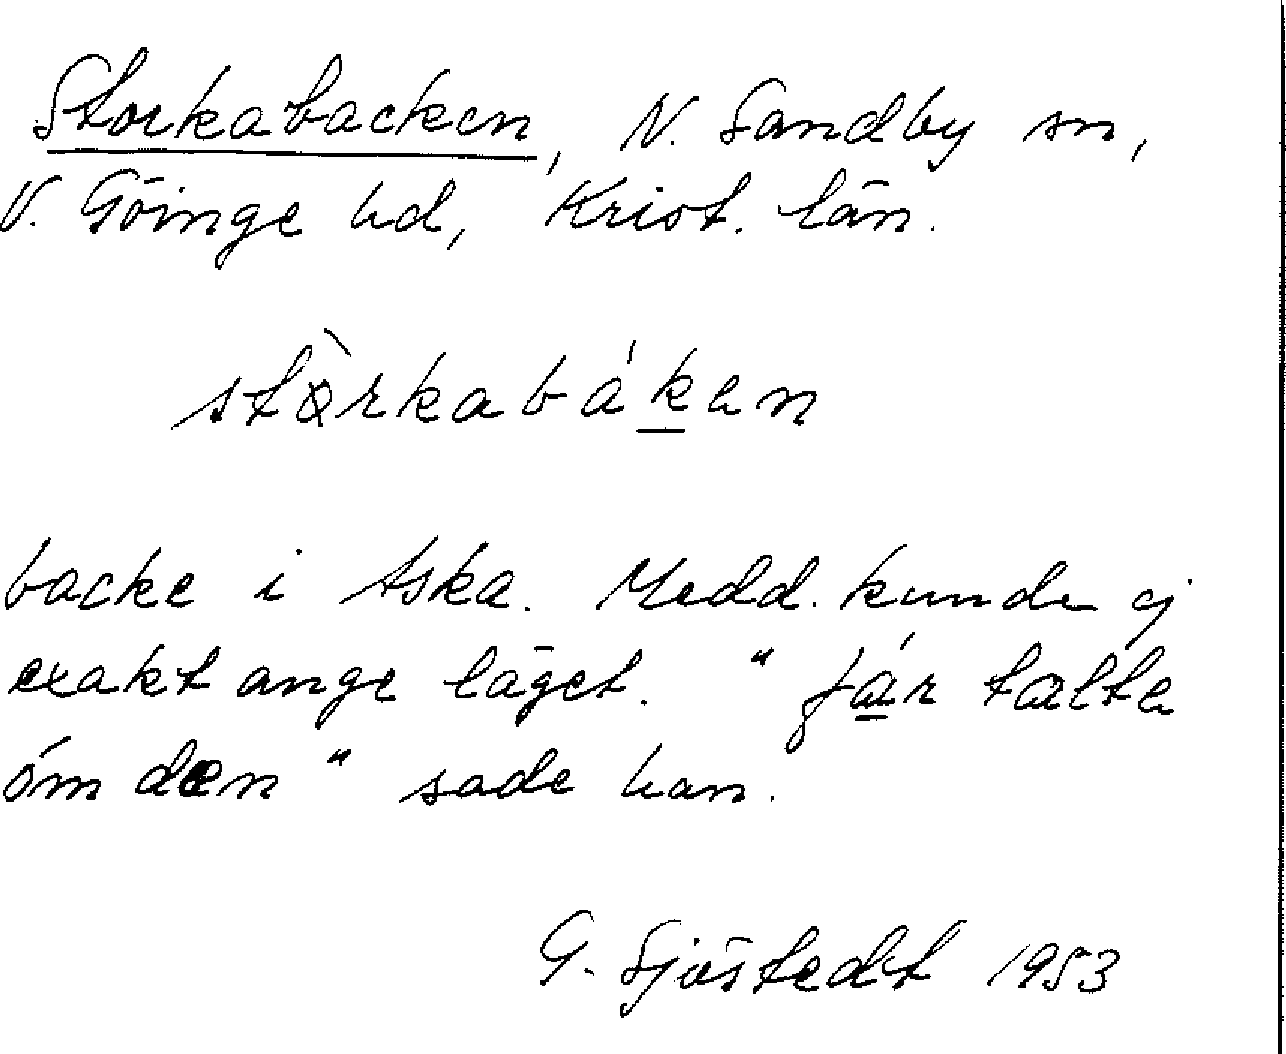 Storkabacken, N. Sandby sn,
V. Göinge hd, Krist. län.
stòrkabákan
backe i Aska. Medd. kunde ej
exakt ange läget. " fár talte
óm den " sade han.
G. Sjöstedt 1953